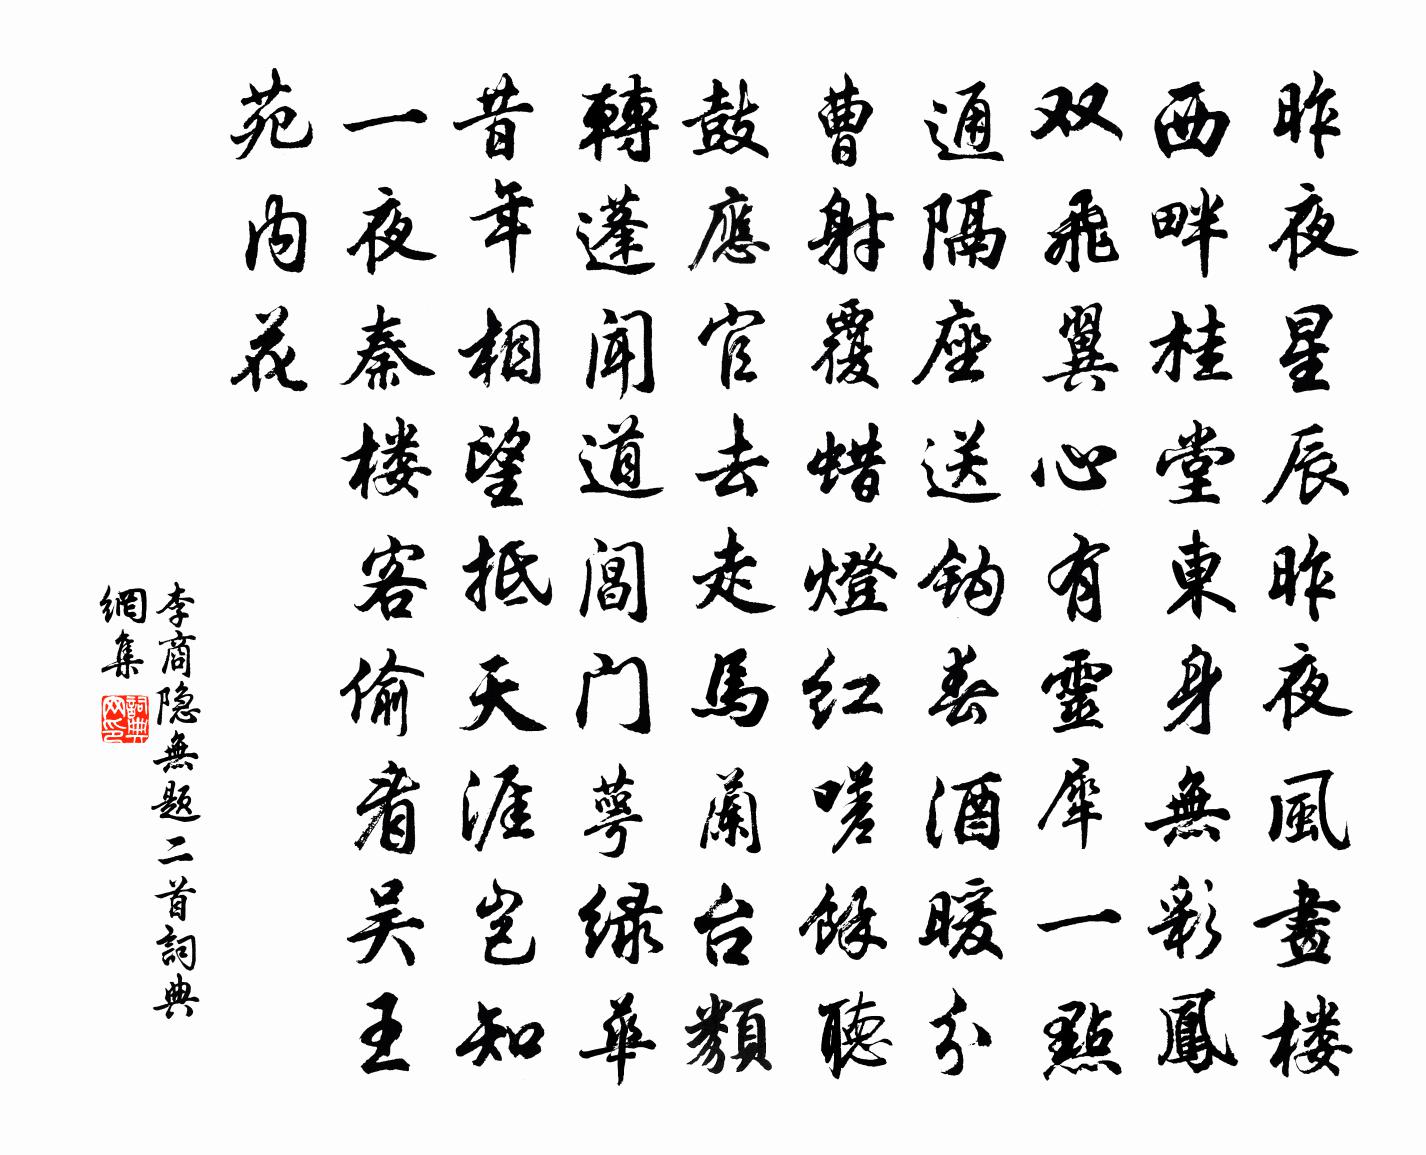 昨夜星辰昨夜風畫楼
西畔桂堂東身無彩鳳
双飛翼心有靈犀一點
通隔座送鈎春酒暖分
曹射覆蜡燈红嗟餘聽
鼓應官去走馬蘭台類
轉蓬聞道閶门萼绿華
昔年相望抵天涯豈知
一夜秦楼客偷看吴王
苑内花
李商隐無题二首詞典
網集
詞典
网印